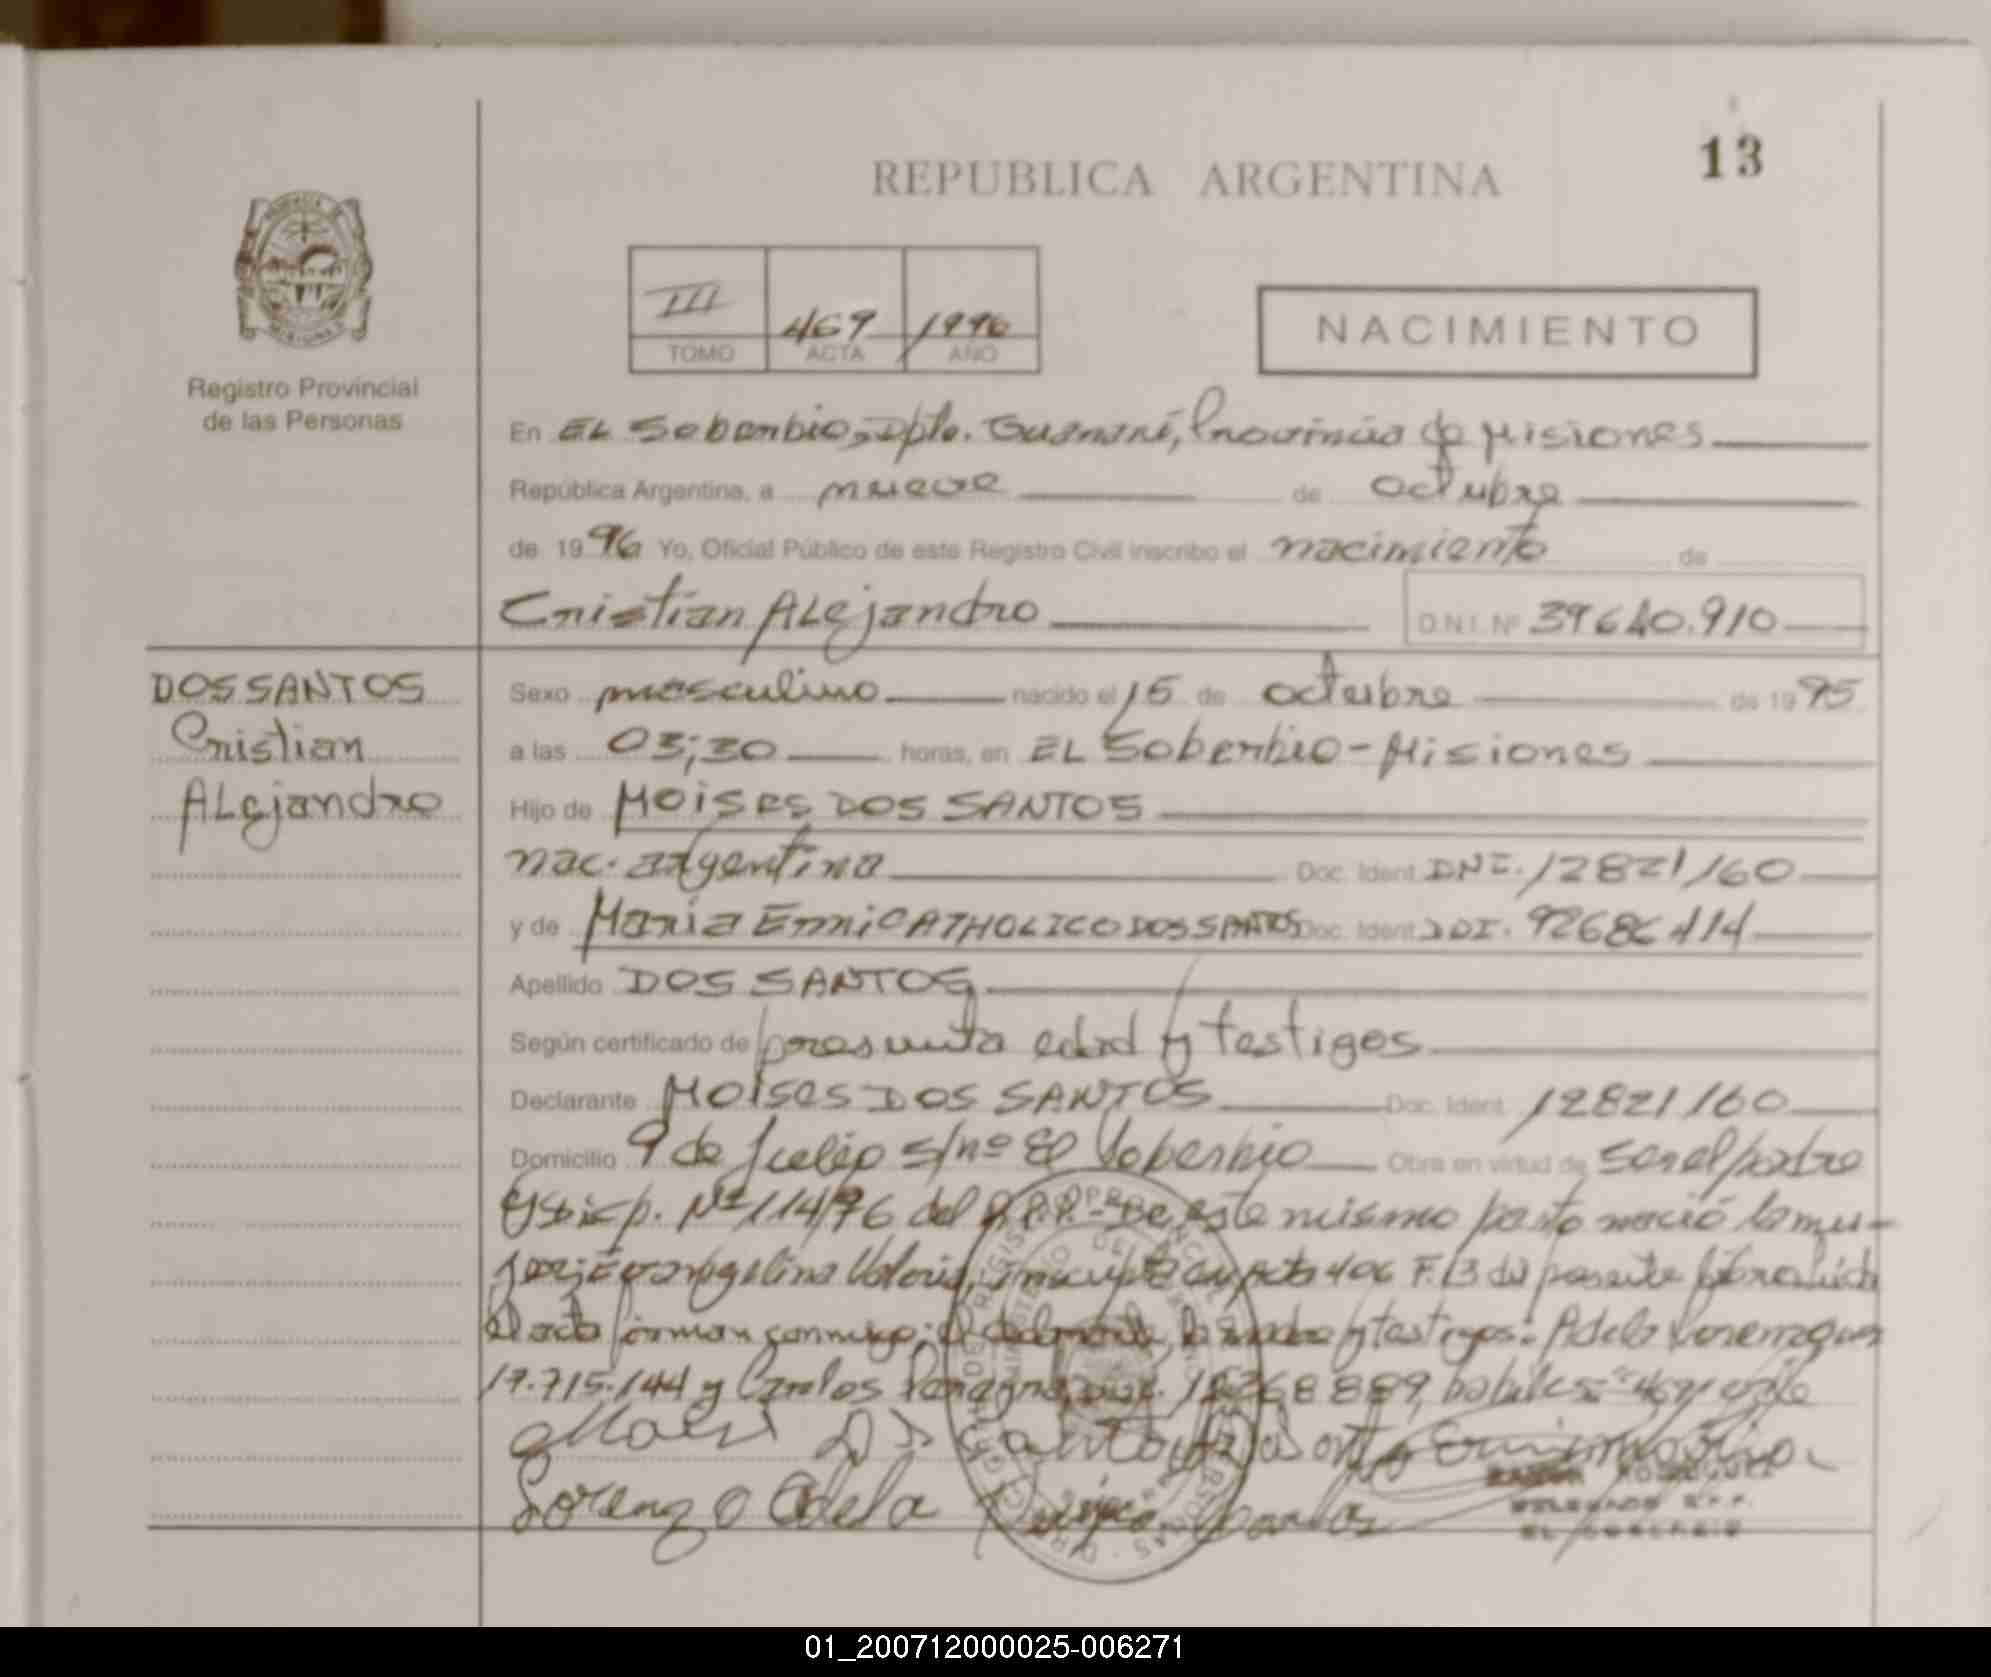 13
REPUBLICA ARGENTINA
III 469 1996
TOMO ACTA AÑO
NACIMIENTO
Registro Provincial
de las Personas
En EL Soberbio, Dpto. Guaraní, Provincia de Misiones
República Argentina, a nueve de octubre
de 1996 Yo, Oficial Público de este Registro Civil inscribo el nacimiento de
Cristian ALejandro D.N.I. Nº 39640.910
DOS SANTOS
Cristian
ALejandro
Sexo masculino nacido el 15 de octubre de 1995
a las 03;30 horas, en EL Soberbio - Misiones
Hijo de MOISES DOS SANTOS
nac. argentina Doc. Ident. DNI. 12821160
y de Maria Enni CATHOLICO DOS SANTOS Doc. Ident. 92686414
Apellido DOS SANTOS
Según certificado de presunta edad y testigos
Declarante MOISES DOS SANTOS Doc. Ident. 12821160
Domicilio 9 de Julio s/nº El Soberbio Obra en virtud de ser el padre
y Disp. Nº 114/96 del R.P.P. - De este mismo parto nació la mu-
Evangelina Valeria, inscripta en acta F. 13 del presente
El acta firman conmigo; el la madre y testigos: Adela
17.715.144 y Carlos
Dos Santos
Lorenzo Adela Carlos
RAMON RODRIGUEZ
DELEGADO R.P.P.
EL SOBERBIO
01_200712000025-006271